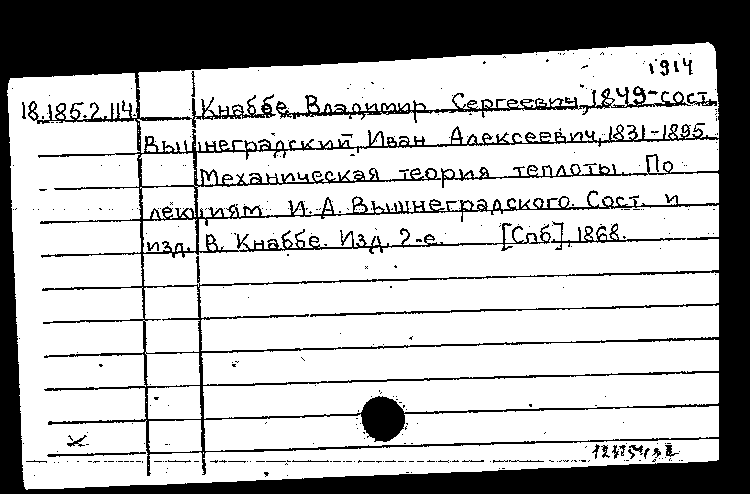 1914
18.185.2.114 Кнаббе, Владимир Сергеевич, 1849- сост.
Вышнеградский, Иван Алексеевич, 1831-1895.
Механическая теория теплоты. По
лекциям И. А. Вышнеградского. Сост. и
изд. В. Кнаббе. Изд. 2-е. [Спб.], 1868.